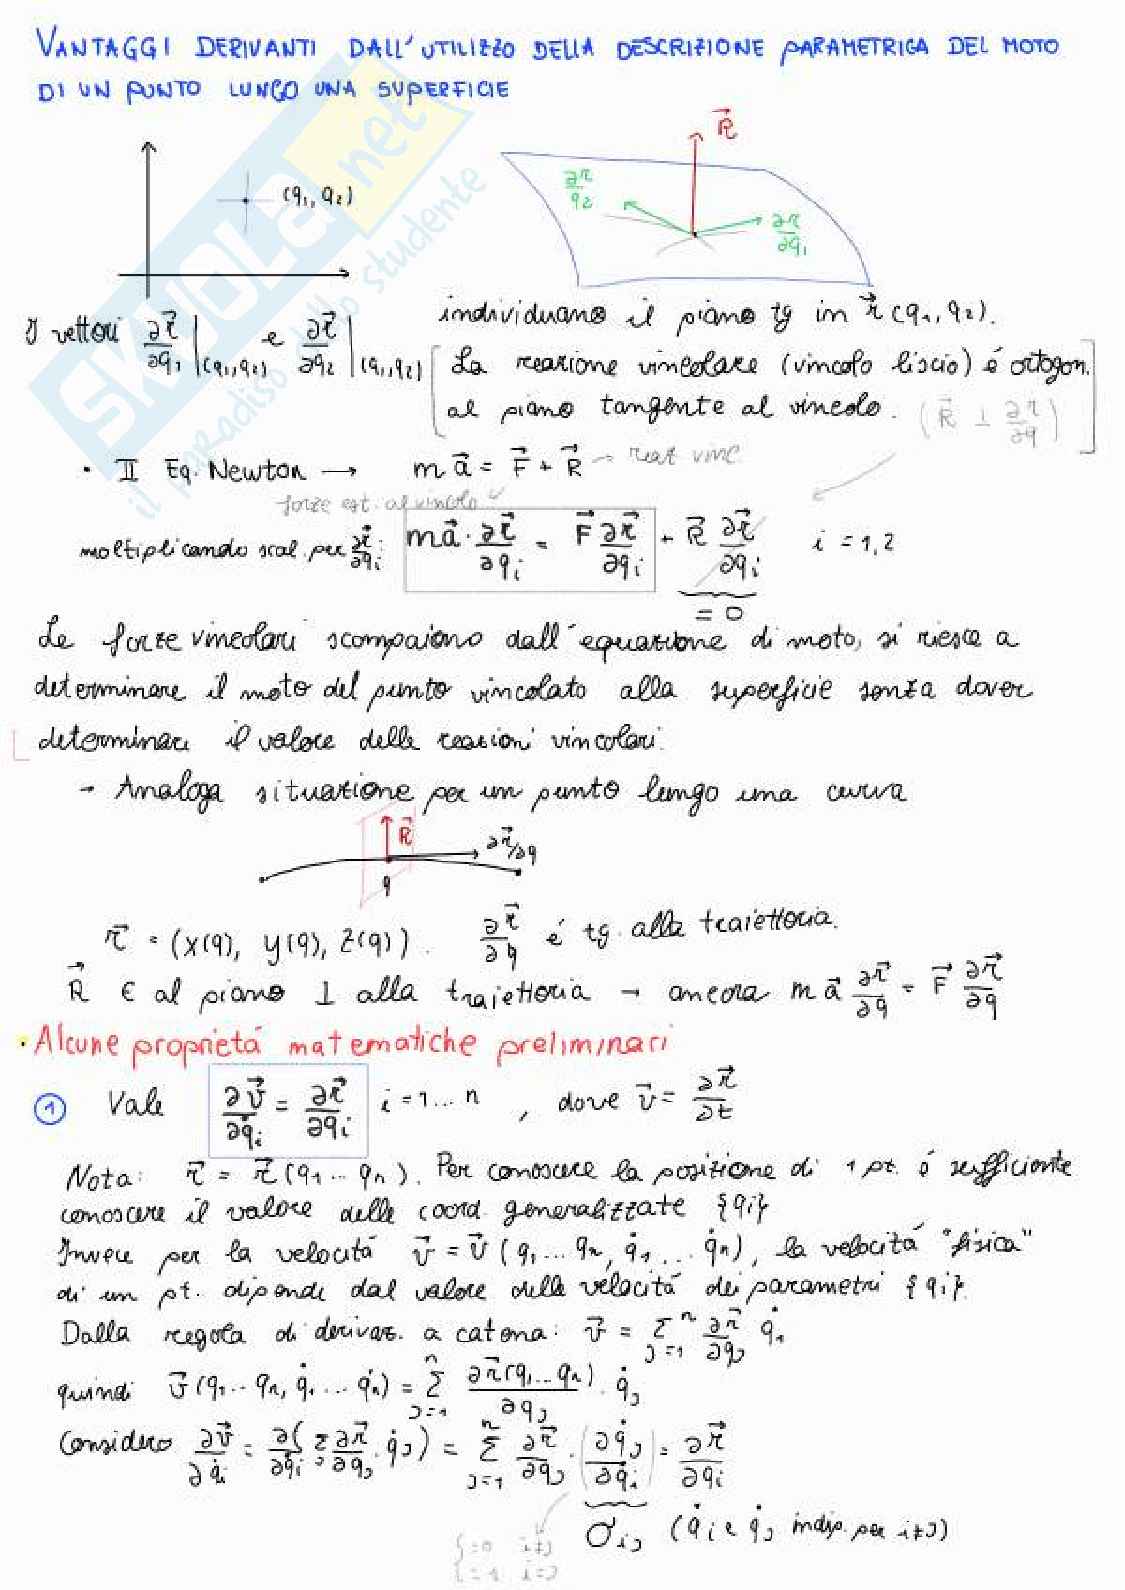 VANTAGGI DERIVANTI DALL'UTILIZZO DELLA DESCRIZIONE PARAMETRICA DEL MOTO
DI UN PUNTO LUNGO UNA SUPERFICIE
(q₁, q₂)
R⃗
∂r/q₂
∂r/∂q₁
SKUOLA.net
il paradiso dello studente
I vettori ∂r⃗/∂q₁|(q₁,q₂) e ∂r⃗/∂q₂|(q₁,q₂) individuano il piano tg in r⃗(q₁,q₂).
[La reazione vincolare (vincolo liscio) é ortogon.
al piano tangente al vincolo. (R⃗ ⊥ ∂r/∂q)]
• II Eq. Newton → ma⃗ = F⃗ + R⃗ → reaz vinc.
forze est. al vincolo
moltiplicando scal. per ∂r⃗/∂qᵢ: ma⃗·∂r⃗/∂qᵢ = F⃗ ∂r⃗/∂qᵢ + R⃗ ∂r⃗/∂qᵢ i = 1,2
= 0
Le forze vincolari scompaiono dall'equazione di moto, si riesce a
determinare il moto del punto vincolato alla superficie senza dover
determinare il valore delle reazioni vincolari.
→ Analoga situazione per un punto lungo una curva
R⃗
∂r⃗/∂q
q
r⃗ = (x(q), y(q), z(q)). ∂r⃗/∂q é tg. alla traiettoria.
R⃗ ∈ al piano ⊥ alla traiettoria → ancora ma⃗ ∂r⃗/∂q = F⃗ ∂r⃗/∂q
• Alcune proprietá matematiche preliminari
① Vale ∂v⃗/∂q̇ᵢ = ∂r⃗/∂qᵢ i = 1...n , dove v⃗ = ∂r⃗/∂t
Nota: r⃗ = r⃗(q₁...qₙ). Per conoscere la posizione di 1 pt. é sufficiente
conoscere il valore delle coord. generalizzate {qᵢ}
Invece per la velocitá v⃗ = v⃗(q₁...qₙ, q̇₁...q̇ₙ), la velocitá "fisica"
di un pt. dipende dal valore delle velocitá dei parametri {qᵢ}.
Dalla regola di derivaz. a catena: v⃗ = Σⱼ₌₁ⁿ ∂r⃗/∂qⱼ q̇₁
quindi v⃗(q₁...qₙ, q̇₁...q̇ₙ) = Σⱼ₌₁ⁿ ∂r⃗(q₁...qₙ)/∂qⱼ · q̇ⱼ
Considero ∂v⃗/∂q̇ᵢ = ∂/∂q̇ᵢ(Σⱼ ∂r⃗/∂qⱼ · q̇ⱼ) = Σⱼ₌₁ⁿ ∂r⃗/∂qⱼ · (∂q̇ⱼ/∂q̇ᵢ) = ∂r⃗/∂qᵢ
{=0 i≠j
=1 i=j
σᵢⱼ (q̇ᵢ e q̇ⱼ indip. per i≠j)